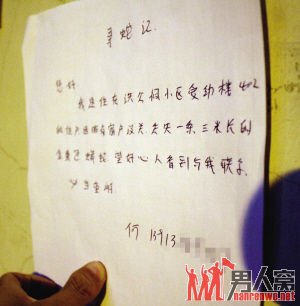 寻蛇记
您好
我是住在洪公祠小区爱幼楼402
的住户因晒台窗户没关,走失一条三米长的
金黄色蟒蛇,望好心人看到与我联系
必当重谢
何 13913
男人窝
nanrenwo.net